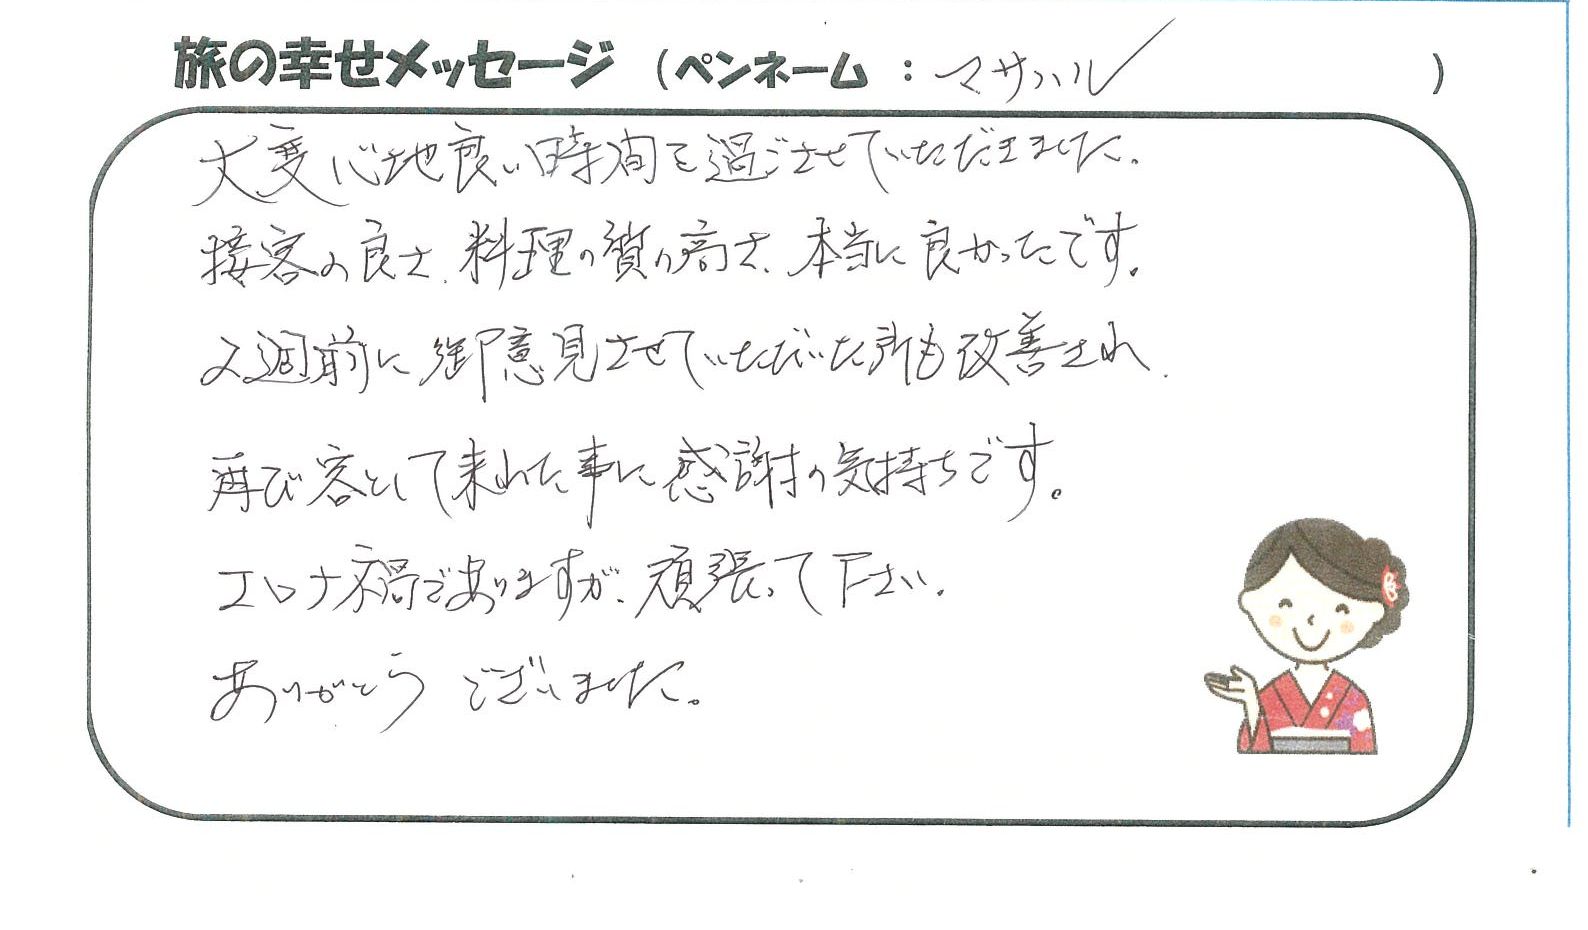 旅の幸せメッセージ (ペンネーム : マサハル )
大変心地良い時間を過ごさせていただきました。
接客の良さ、料理の質の高さ、本当に良かったです。
2週前に御意見させていただいた所も改善され、
再び客として来れた事に感謝の気持ちです。
コロナ禍でありますが、頑張って下さい。
ありがとうございました。